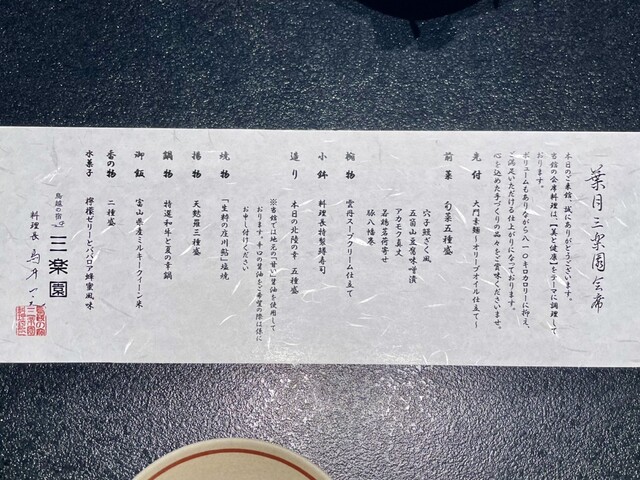 葉月三楽園会席
本日のご来館、誠にありがとうございます。
当館の会席料理は、【美と健康】をテーマに調理して
おります。
ボリュームもありながら八一〇キロカロリーに抑え、
ご満足いただける仕上がりになっております。
心を込めた手づくりの品々をご賞味くださいませ。
先付 大門素麺~オリーブオイル仕立て~
前菜 旬菜五種盛
穴子鰻ざく風
五箇山豆腐味噌漬
アカモク真丈
若鶏茗荷寄せ
豚八幡巻
椀物 雲丹スープクリーム仕立て
小鉢 料理長特製蒸寿司
造り 本日の北陸の幸 五種盛
※当館では地元の「甘い」醤油を使用して
おります。辛口の醤油をご希望の際は係に
お申し付けください
焼物 「生粋の庄川鮎」塩焼
鍋物 特選和牛と夏の幸鍋
揚物 天麩羅三種盛
御飯 富山県産ミルキークィーン米
香の物 二種盛
水菓子 檸檬ゼリーとババロア蜂蜜風味
鳥越の宿 三楽園
料理長